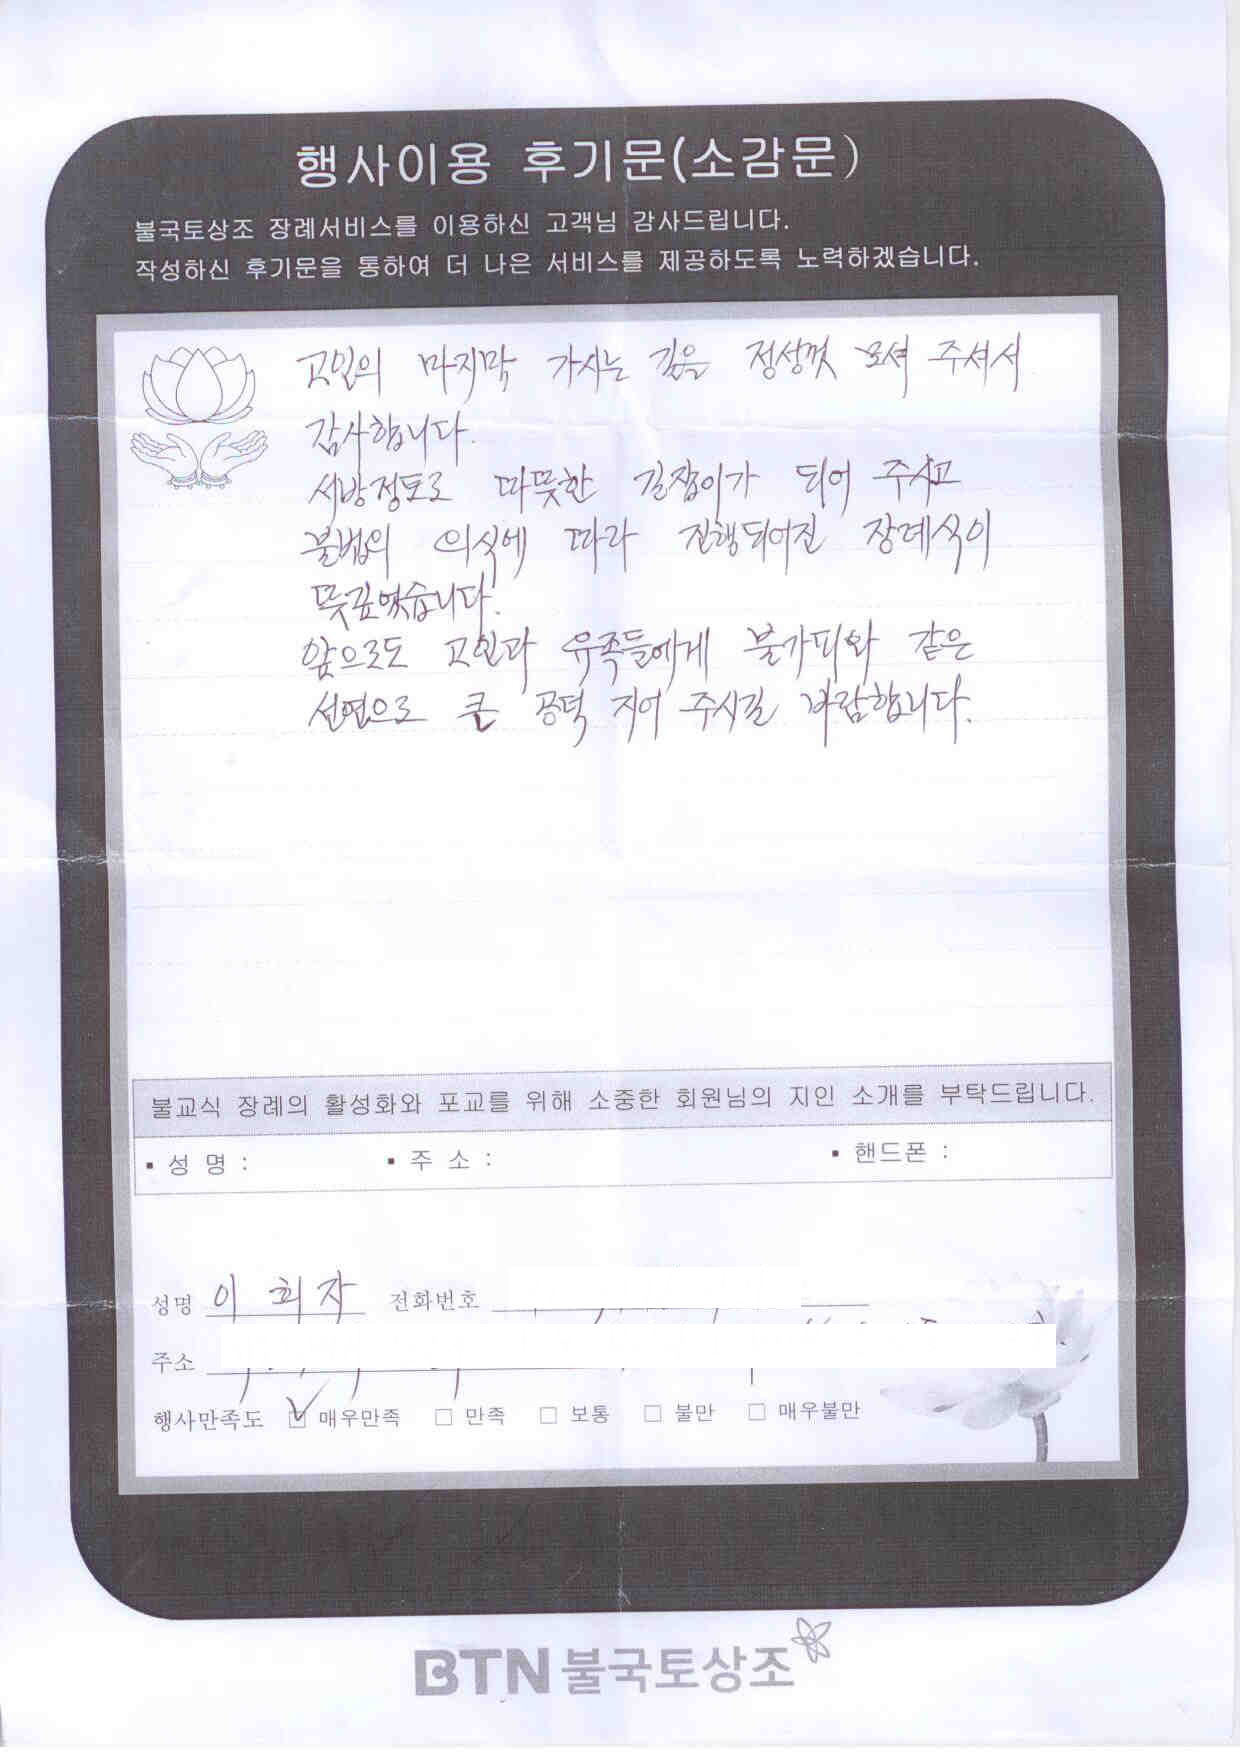 행사이용 후기문(소감문)
불국토상조 장례서비스를 이용하신 고객님 감사드립니다.
작성하신 후기문을 통하여 더 나은 서비스를 제공하도록 노력하겠습니다.
고인의 마지막 가시는 길을 정성껏 모셔 주셔서
감사합니다.
서방정토로 따뜻한 길잡이가 되어 주시고
불법의 의식에 따라 진행되어진 장례식이
뜻깊었습니다.
앞으로도 고인과 유족들에게 불가피와 같은
선연으로 큰 공덕 지어 주시길 바람합니다.
불교식 장례의 활성화와 포교를 위해 소중한 회원님의 지인 소개를 부탁드립니다.
▪ 성 명 : ▪ 주 소 : ▪ 핸드폰 :
성명 이희자 전화번호
주소
행사만족도 ☑ 매우만족 □ 만족 □ 보통 □ 불만 □ 매우불만
BTN 불국토상조